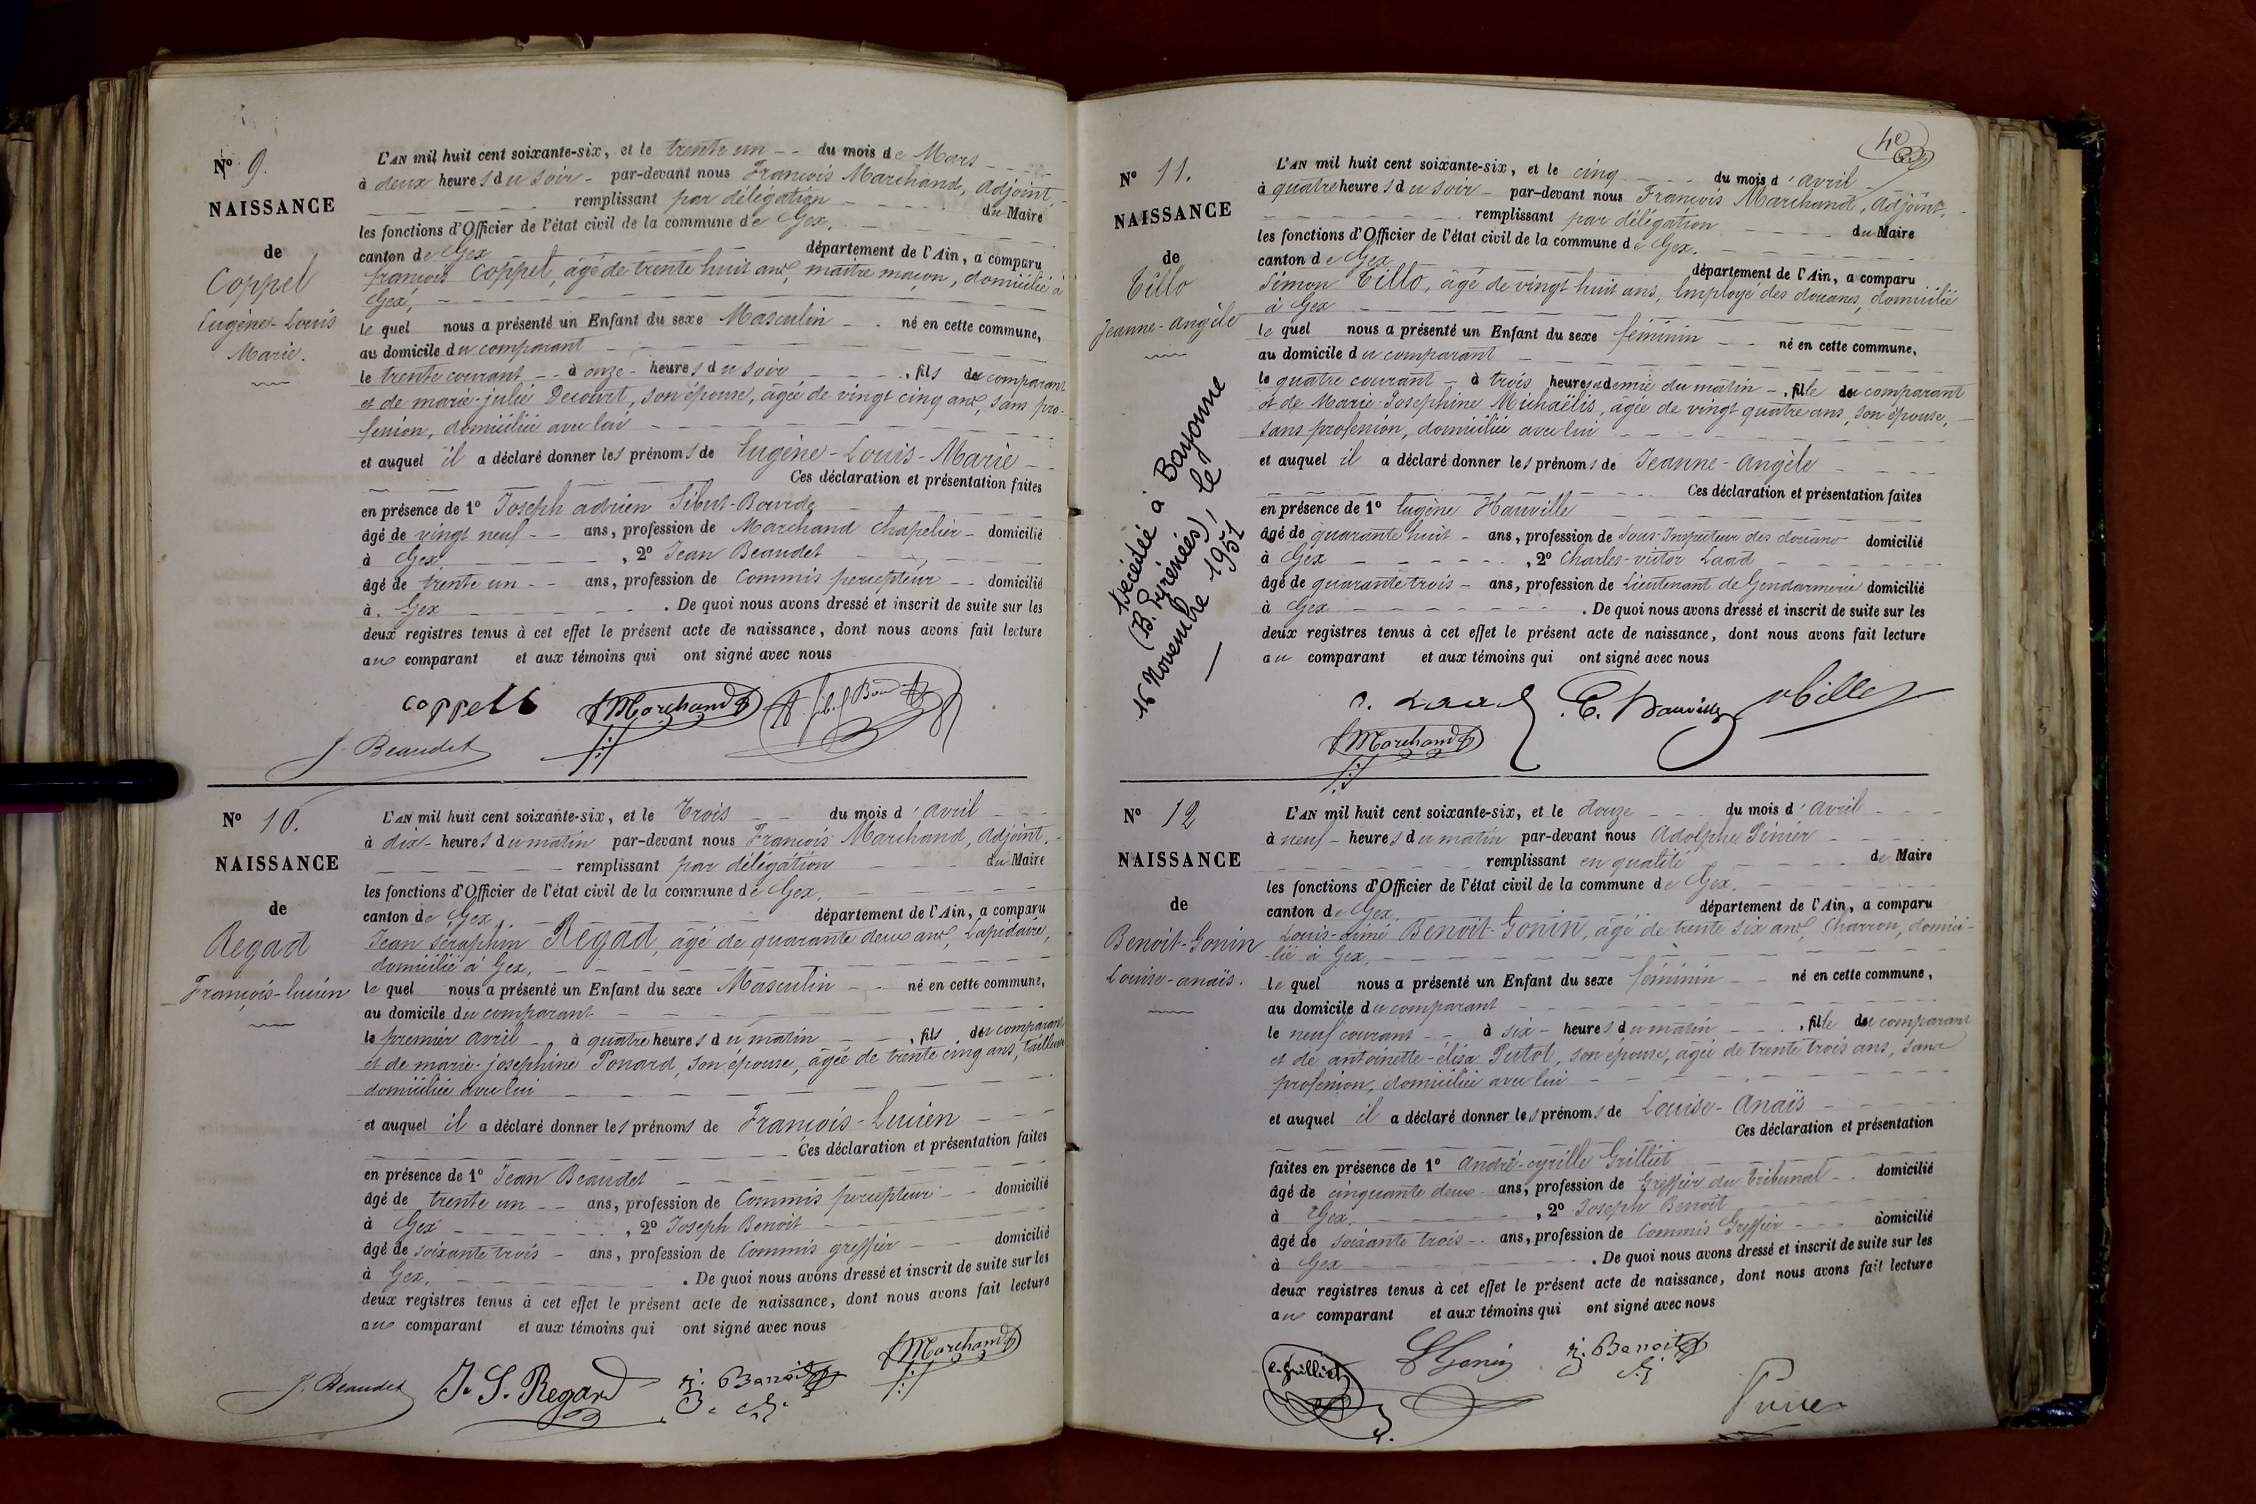 Nº 9.
NAISSANCE
de
Coppel
Eugène-Louis
Marie.
L'AN mil huit cent soixante-six, et le trente un -- du mois de Mars
à deux heures du soir - par-devant nous François Marchand, adjoint,
remplissant par délégation du Maire
les fonctions d'Officier de l'état civil de la commune de Gex.
canton de Gex département de l'Ain, a comparu
françois Coppel, âgé de trente huit ans, maître maçon, domicilié à
Gex,
le quel nous a présenté un Enfant du sexe Masculin -- né en cette commune,
au domicile du comparant
le trente courant -- à onze - heures du soir , fils du comparant
et de marie-julie Decourt, son épouse, âgée de vingt cinq ans, sans pro-
fession, domiciliée avec lui
et auquel il a déclaré donner les prénoms de Eugène-Louis-Marie
Ces déclaration et présentation faites
en présence de 1º Joseph adrien Sibut-Bourde
âgé de vingt neuf -- ans, profession de Marchand chapelier - domicilié
à Gex , 2º Jean Beaudet
âgé de trente un -- ans, profession de Commis percepteur -- domicilié
à Gex . De quoi nous avons dressé et inscrit de suite sur les
deux registres tenus à cet effet le présent acte de naissance, dont nous avons fait lecture
au comparant et aux témoins qui ont signé avec nous
Coppel F Marchand
J. Beaudet
Nº 10.
NAISSANCE
de
Regad
François-lucien
L'AN mil huit cent soixante-six, et le Trois du mois d'avril
à dix - heures du matin par-devant nous François Marchand, adjoint,
remplissant par délégation du Maire
les fonctions d'Officier de l'état civil de la commune de Gex,
canton de Gex, département de l'Ain, a comparu
Jean séraphin Régad, âgé de quarante deux ans, Lapidaire,
domicilié à Gex,
le quel nous a présenté un Enfant du sexe Masculin -- né en cette commune,
au domicile du comparant
le premier avril - à quatre heures du matin , fils du comparant
et de marie-josephine Ponard, son épouse, âgée de trente cinq ans, tailleuse
domiciliée avec lui
et auquel il a déclaré donner les prénoms de François-Lucien
Ces déclaration et présentation faites
en présence de 1º Jean Beaudet
âgé de trente un -- ans, profession de Commis percepteur - domicilié
à Gex , 2º Joseph Benoit
âgé de soixante trois - ans, profession de Commis greffier domicilié
à Gex. . De quoi nous avons dressé et inscrit de suite sur les
deux registres tenus à cet effet le présent acte de naissance, dont nous avons fait lecture
au comparant et aux témoins qui ont signé avec nous
F Marchand
J. Beaudet J. S. Regard j. Benoit
4e
Nº 11.
NAISSANCE
de
Tillo
Jeanne-angèle
Décédée à Bayonne
(B. Pyrénées), le
16 Novembre 1951
L'AN mil huit cent soixante-six, et le cinq du mois d'avril
à quatre heures du soir - par-devant nous François Marchand, adjoint,
remplissant par délégation du Maire
les fonctions d'Officier de l'état civil de la commune de Gex.
canton de Gex département de l'Ain, a comparu
Simon Tillo, âgé de vingt huit ans, Employé des douanes, domicilié
à Gex
le quel nous a présenté un Enfant du sexe féminin -- né en cette commune,
au domicile du comparant
le quatre courant - à trois heures et demie du matin -, fille du comparant
et de Marie-Josephine Michaëlis, âgée de vingt quatre ans, son épouse,
sans profession, domiciliée avec lui
et auquel il a déclaré donner les prénoms de Jeanne-angèle
Ces déclaration et présentation faites
en présence de 1º Eugène Hauville
âgé de quarante huit - ans, profession de Sous-Inspecteur des douanes domicilié
à Gex , 2º Charles-victor Laad
âgé de quarante trois - ans, profession de Lieutenant de Gendarmerie domicilié
à Gex . De quoi nous avons dressé et inscrit de suite sur les
deux registres tenus à cet effet le présent acte de naissance, dont nous avons fait lecture
au comparant et aux témoins qui ont signé avec nous
C. Laad E. Hauville Tillo
F Marchand
Nº 12
NAISSANCE
de
Benoit-Gonin
Louise-anaïs.
L'AN mil huit cent soixante-six, et le douze du mois d'avril
à neuf - heures du matin par-devant nous Adolphe Pinier
remplissant en qualité de Maire
les fonctions d'Officier de l'état civil de la commune de Gex.
canton de Gex, département de l'Ain, a comparu
Louis-aimé Benoit-Gonin, âgé de trente six ans, Charron, domici-
-lié à Gex,
le quel nous a présenté un Enfant du sexe féminin né en cette commune,
au domicile du comparant
le neuf courant - à six - heures du matin , fille du comparant
et de antoinette-élisa Putot, son épouse, âgée de trente trois ans, sans
profession, domiciliée avec lui
et auquel il a déclaré donner les prénoms de Louise-Anaïs
Ces déclaration et présentation
faites en présence de 1º André-cyrille Grilliet
âgé de cinquante deux - ans, profession de Greffier du tribunal domicilié
à Gex , 2º Joseph Benoit
âgé de soixante trois ans, profession de Commis Greffier domicilié
à Gex . De quoi nous avons dressé et inscrit de suite sur les
deux registres tenus à cet effet le présent acte de naissance, dont nous avons fait lecture
au comparant et aux témoins qui ont signé avec nous
C. Grilliet Gonin j. Benoit